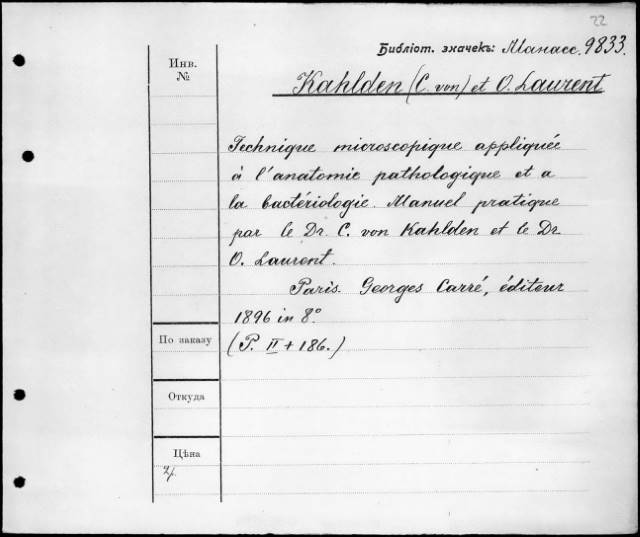 22
Библіот. значекъ: Манасс. 9833.
Инв.
№
Kahlden (C. von) et O. Laurent
Technique microscopique appliquée
à l'anatomie pathologique et a
la bactériologie. Manuel pratique
par le Dr. C. von Kahlden et le Dr
O. Laurent.
Paris. Georges Carré, éditeur
1896 in 8°.
По заказу
(P. II + 186.)
Откуда
Цѣна